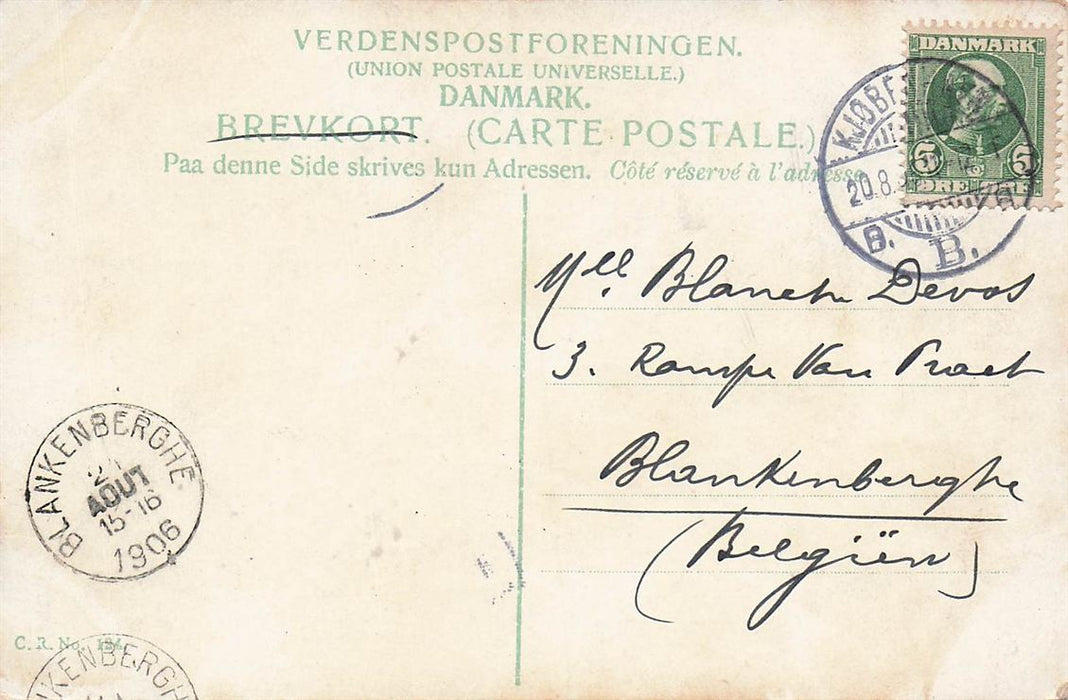 VERDENSPOSTFORENINGEN.
(UNION POSTALE UNIVERSELLE.)
DANMARK.
BREVKORT. (CARTE POSTALE.)
Paa denne Side skrives kun Adressen. Côté réservé à l'adresse
DANMARK
5 5
ØRE
KJØBENHAVN
20.8.
B.
Mlle. Blanche Devos
3. Rampe Van Praet
Blankenberghe
(Belgiën)
BLANKENBERGHE
AOUT
15-16
1906
C. R. No. 124.
BLANKENBERGHE